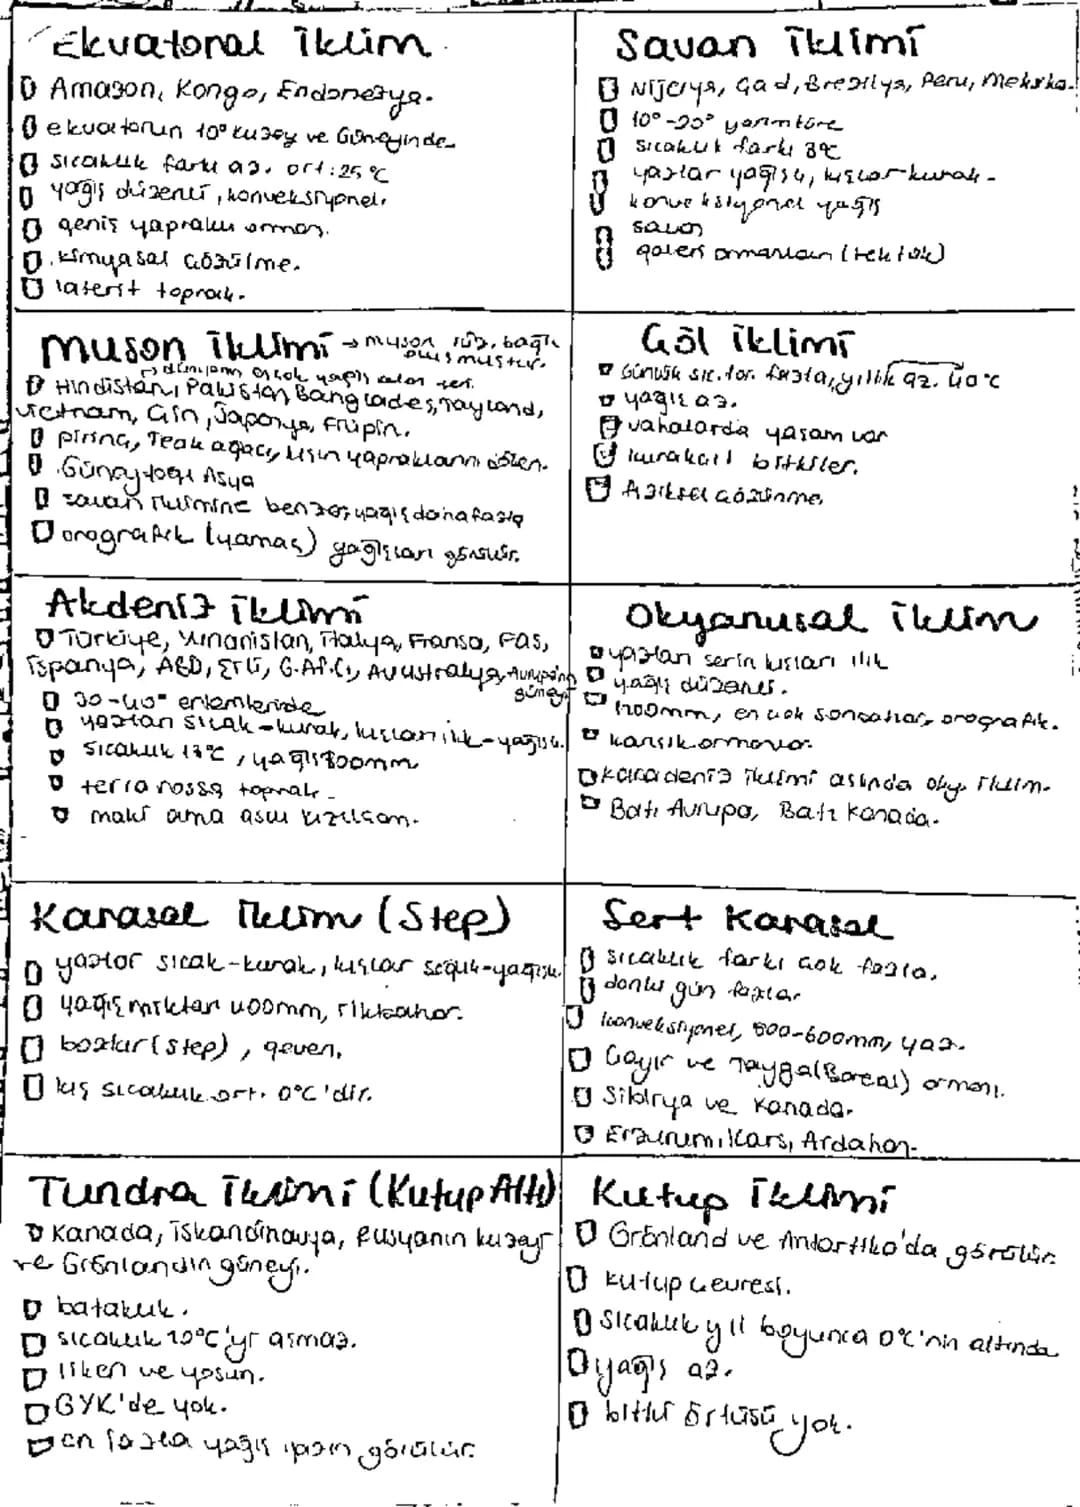 Ekvatoral İklim
Amazon, Kongo, Endonezya.
ekvatorun 10° kuzey ve Güneyinde
sıcaklık farkı az. ort: 25 °C
yağış düzenli, konveksiyonel.
geniş yapraklı orman.
kimyasal çözülme.
laterit toprak.
Savan İklimi
Nijerya, Çad, Brezilya, Peru, Meksika.
10°-20° yarımküre
sıcaklık farkı 3°C
yazlar yağışlı, kışlar kurak-
konveksiyonel yağış
savan
galeri ormanları (tek tük)
Muson İklimi → muson rüz. bağlı
oluşmuştur.
→ dünyanın en çok yağış alan yeri.
Hindistan, Pakistan, Bangladeş, Tayland,
Vietnam, Çin, Japonya, Filipin.
pirinç, Teak ağacı, kışın yapraklarını döken.
Güneydoğu Asya
savan iklimine benzer, yağış daha fazla
orografik (yamaç) yağışları görülür.
Çöl İklimi
Günlük sıc. far. fazla, yıllık az. 40°C
yağış az.
vahalarda yaşam var
kurakçıl bitkiler.
fiziksel çözünme.
Akdeniz İklimi
Türkiye, Yunanistan, İtalya, Fransa, Fas,
İspanya, ABD, ŞİLİ, G.Af.C, Avustralya, Avrupa'nın
güneyi
30-40° enlemlerinde
yazları sıcak-kurak, kışları ılık-yağışlı.
sıcaklık 18°C, yağış 800mm
terra rossa toprak-
maki ama asıl kızılçam.
Okyanusal İklim
yazları serin kışları ılık
yağış düzenli.
1200mm, en çok sonbahar, orografik.
karışık orman
Karadeniz iklimi aslında oky. iklim.
Batı Avrupa, Batı Kanada.
Karasal İklim (Step)
yazlar sıcak-kurak, kışlar soğuk-yağışlı.
yağış miktarı 400mm, ilkbahar.
bozkır (step), geven.
kış sıcaklık ort. 0°C'dir.
Sert Karasal
sıcaklık farkı çok fazla.
donlu gün fazla
konveksiyonel, 500-600mm, yaz.
Çayır ve Tayga(Boreal) ormanı.
Sibirya ve Kanada.
Erzurum, Kars, Ardahan-
Tundra İklimi (Kutup Altı)
Kanada, İskandinavya, Rusyanın kuzeyi
ve Grönlandın güneyi.
bataklık.
sıcaklık 10°C'yi aşmaz.
liken ve yosun.
GYK'de yok.
en fazla yağış yazın görülür.
Kutup İklimi
Grönland ve Antartika'da görülür
kutup çevresi.
sıcaklık yıl boyunca 0°C'nin altında
yağış az.
bitki örtüsü yok.